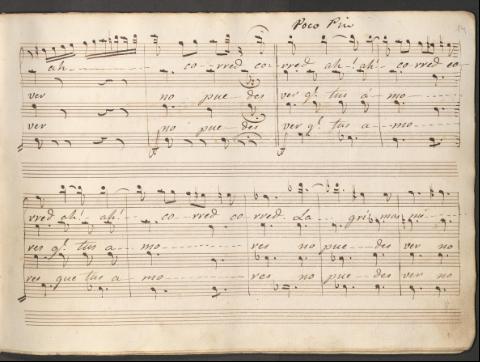 Poco Piu
ah - - - co - rred co - rred ah! ah! - co - rred co -
ver - - - no pue - des ver q.e tus a - mo - - -
ver - - - no pue - des ver q.e tus a - mo - - -
rred ah! ah! - co - rred co - rred La - gri - mas mi -
res q.e tus a - mo - - - res no pue - des ver no
res que tus a - mo - - - res no pue - des ver no